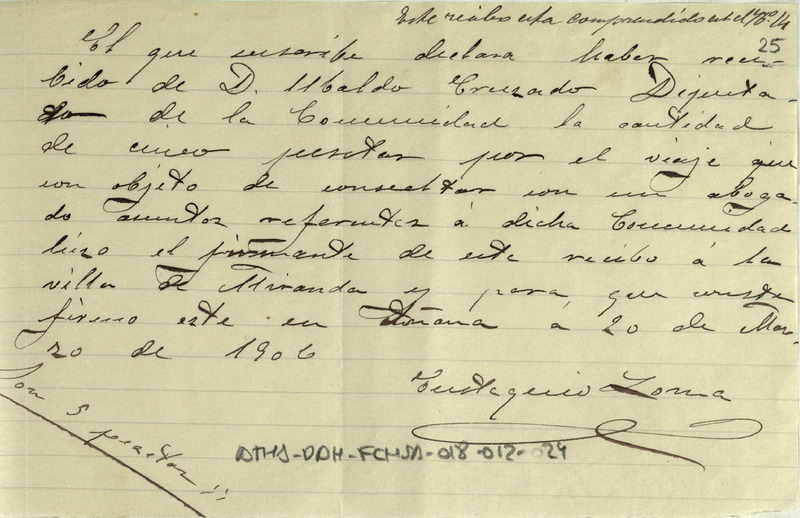 Este recibo esta comprendido en el nº 14
25
El que suscribe declara haber reci-
bido de D. Ubaldo Cruzado Diputa-
do de la Comunidad la cantidad
de cinco pesetas por el viaje que
con objeto de consultar con un aboga-
do asuntos referentes á dicha Comunidad
hizo el firmante de este recibo á la
villa de Miranda y para que conste
firmo este en Ocio á 20 de Mar-
zo de 1906
Eustaquio Loma
Son 5 pesetas
ATHA-DDH-FCHSA-018-012-024